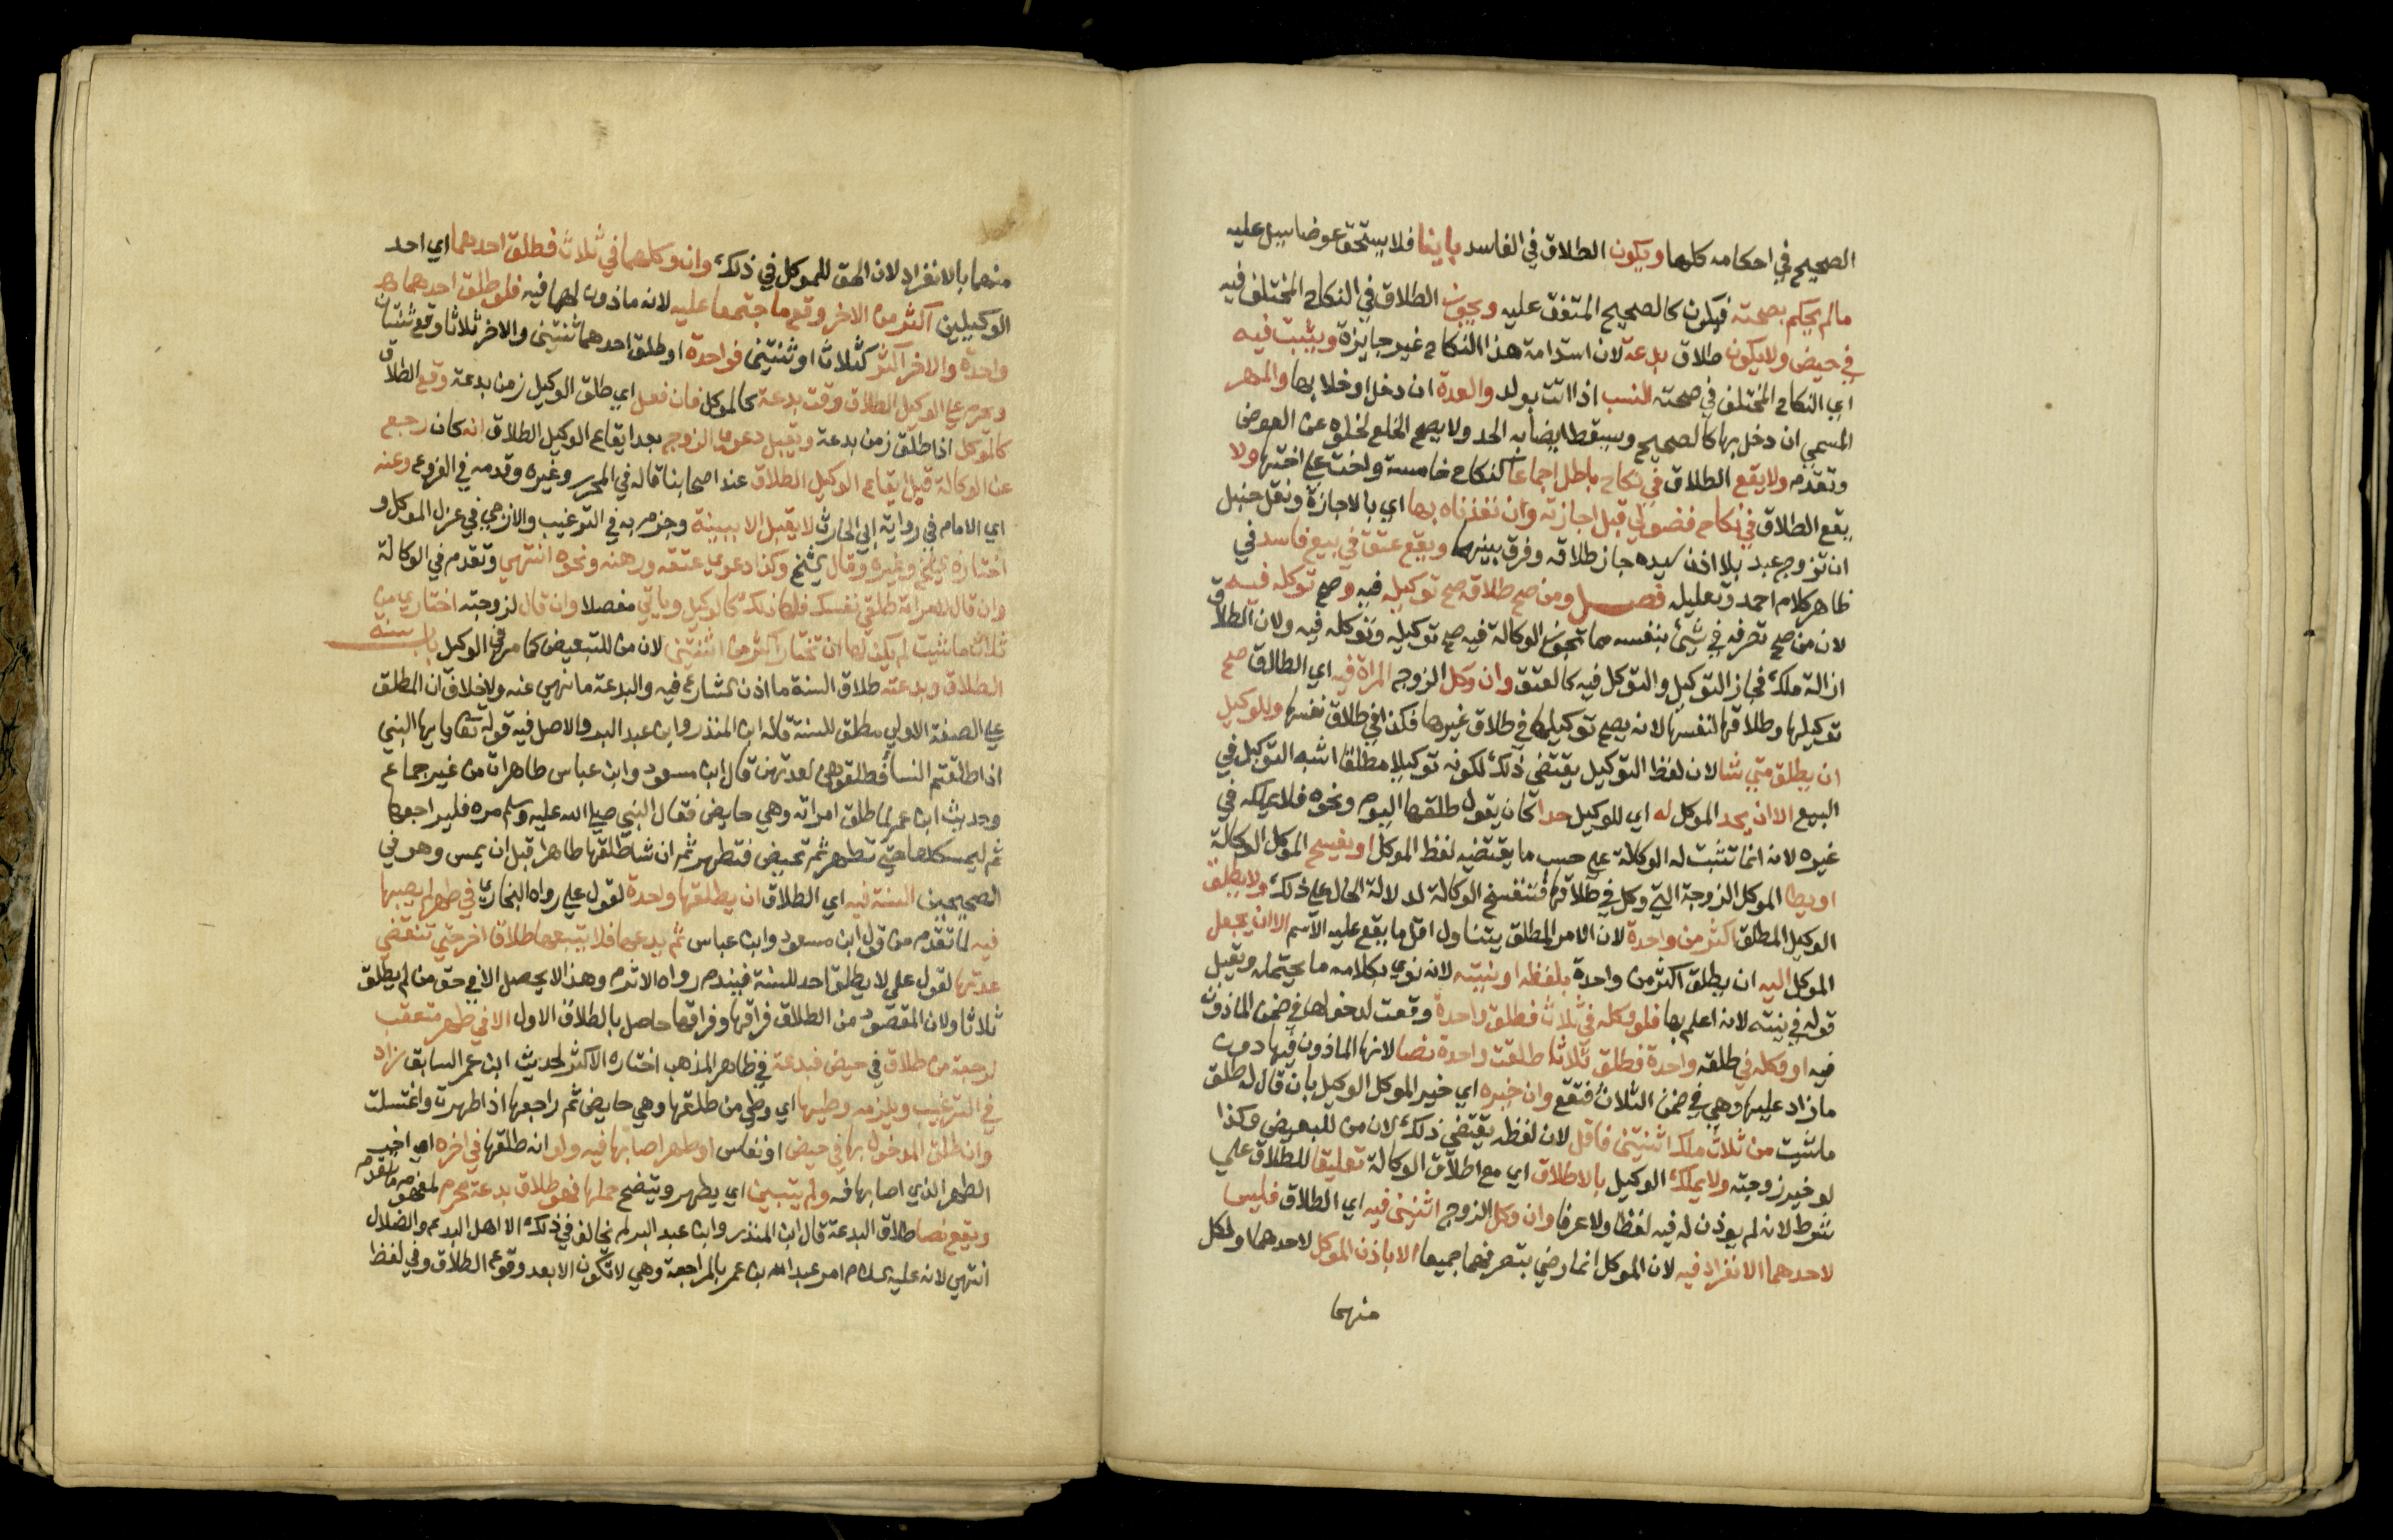 الصحيح في احكامه كلها ويكون الطلاق في الفاسد باينا فلا يستحق عوضا سيل عليه
مالم يحكم بصحته فيكون كالصحيح المتفق عليه ويجوز الطلاق في النكاح المختلف فيه
في حيض ولا يكون طلاق بدعة لان استدامة هذا النكاح غير جايزة ويثبت فيه
اي النكاح المختلف في صحته النسب اذا اتت بولد والعدة ان دخل او خلا بها والمهر
المسمي ان دخل بها كالصحيح ويسقط ايضا به الحد ولا يصح الخلع لخلوه عن العوض
وتقدم ولا يقع الطلاق في نكاح باطل اجماعا كنكاح خامسة واخت علي اختها ولا
يقع الطلاق في نكاح فضولي قبل اجازته وان نفذناه بها اي بالاجازة ونقل حنبل
ان تزوج عبد بلا اذن سيده جاز طلاقه وفرق بينهما ويقع عتق في بيع فاسد في
ظاهر كلام احمد وتعليله فصل ومن صح طلاقه صح توكيله فيه وصح توكله فيه
لان من صح تصرفه في شيئ بنفسه مما تجوز الوكالة فيه صح توكيله وتوكله فيه ولان الطلاق
ازالة ملك فجاز التوكيل والتوكل فيه كالعتق وان وكل الزوج المراة فيه اي الطلاق صح
توكيلها وطلاقها لنفسها لانه يصح توكيلها في طلاق غيرها فكذا في طلاق نفسها وللوكيل
ان يطلق متي شا لان لفظ التوكيل يقتضي ذلك لكونه توكيلا مطلقا اشبه التوكيل في
البيع الا ان يحد الموكل له اي للوكيل حدا كان يقول طلقها اليوم ونحوه فلا يملكه في
غيره لانه انما تثبت له الوكالة علي حسب ما يقتضيه لفظ الموكل او يفسخ الموكل الوكالة
او يطا الموكل الزوجة التي وكل في طلاقها فتنفسخ الوكالة لدلالة الحال علي ذلك ولا يطلق
الوكيل المطلق اكثر من واحدة لان الامر المطلق يتناول اقل ما يقع عليه الاسم الا ان يجعل
الموكل اليه ان يطلق اكثر من واحدة بلفظه او نيته لانه نوي بكلامه ما يحتمله ويقبل
قوله في نيته لانه اعلم بها فلو وكله في ثلاث فطلق واحدة وقعت لدخولها في ضمن الماذون
فيه او وكله في طلقة واحدة فطلق ثلاثا طلقت واحدة نصا لانها الماذون فيها دون
ما زاد عليها وهي في ضمن الثلاث فتقع وان خيره اي خير الموكل الوكيل بان قال له طلق
ما شيت من ثلاث ملك اثنتين فاقل لان لفظه يقتضي ذلك لان من للتبعيض وكذا
لو خير زوجته ولا يملك الوكيل بالاطلاق اي مع اطلاق الوكالة تعليقا للطلاق علي
شرط لانه لم يوذن له فيه لفظا ولا عرفا وان وكل الزوج اثنين فيه اي الطلاق فليس
لاحدهما الانفراد فيه لان الموكل انما رضي بتصرفهما جميعا الا باذن الموكل لاحدهما او لكل
منهما
منهما بالانفراد لان الحق للموكل في ذلك وان وكلهما في ثلاث فطلق احدهما اي احد
الوكيلين اكثر من الاخر وقع ما اجتمعا عليه لانه ماذون لهما فيه فلو طلق احدهما
واحدة والاخر اكثر كثلاث او ثنتين فواحدة او طلق احدهما ثنتين والاخر ثلاثا وقع ثنتان
ويحرم علي الوكيل الطلاق وقت بدعة كالموكل فان فعل اي طلق الوكيل زمن بدعة وقع الطلاق
كالموكل اذا طلق زمن بدعة ويقبل دعوي الزوج بعد ايقاع الوكيل الطلاق انه كان رجع
عن الوكالة قبل ايقاع الوكيل الطلاق عند اصحابنا قاله في المحرر وغيره وقدمه في الفروع وعنه
اي الامام في رواية ابي الحارث لا يقبل الا ببينة وجزم به في الترغيب والازجي في عزل الموكل و
اختاره الشيخ وغيره وقال الشيخ وكذا دعوي عتقه ورهنه ونحوه انتهي وتقدم في الوكالة
وان قال لامراته طلقي نفسك فلها ذلك كالوكيل وياتي مفصلا وان قال لزوجته اختاري من
ثلاث ما شيت لم يكن لها ان تختار اكثر من اثنتين لان من للتبعيض كما مر في الوكيل باب سنة
الطلاق وبدعته طلاق السنة ما اذن الشارع فيه والبدعة ما نهي عنه ولا خلاف ان المطلق
علي الصفة الاولي مطلق للسنة قاله ابن المنذر وابن عبد البر والاصل فيه قوله تعالي يا ايها النبي
اذا طلقتم النسا فطلقوهن لعدتهن قال ابن مسعود وابن عباس طاهرات من غير جماع
وحديث ابن عمر لما طلق امراته وهي حايض فقال النبي صلي الله عليه وسلم مره فليراجعها
ثم ليمسكها حتي تطهر ثم تحيض فتطهر ثم ان شا طلقها طاهرا قبل ان يمس وهو في
الصحيحين السنة فيه اي الطلاق ان يطلقها واحدة لقول علي رواه البخاري في طهر لم يصبها
فيه لما تقدم من قول ابن مسعود وابن عباس ثم يدعها فلا يتبعها طلاقا اخر حتي تنقضي
عدتها لقول علي لا يطلق احد للسنة فيندم رواه الاثرم وهذا لا يحصل الا في حق من لم يطلق
ثلاثا ولان المقصود من الطلاق فراقها وفراقها حاصل بالطلاق الاول الا في طهر متعقب
لرجعة من طلاق في حيض فبدعة في ظاهر المذهب اختاره الاكثر لحديث ابن عمر السابق زاد
في الترغيب ويلزمه وطيها اي وطي من طلقها وهي حايض ثم راجعها اذا طهرت واغتسلت
وان طلق المدخول بها في حيض او نفاس او طهر اصابها فيه ولو انه طلقها في اخره اي اخر
الطهر الذي اصابها فيه ولم يتبين اي يظهر ويتضح حملها فهو طلاق بدعة محرم لمفهوم ما تقدم
ويقع نصا طلاق البدعة قال ابن المنذر وابن عبد البر لم يخالف في ذلك الا اهل البدع والضلال
انتهي لانه عليه السلام امر عبد الله بن عمر بالمراجعة وهي لا تكون الا بعد وقوع الطلاق وفي لفظ